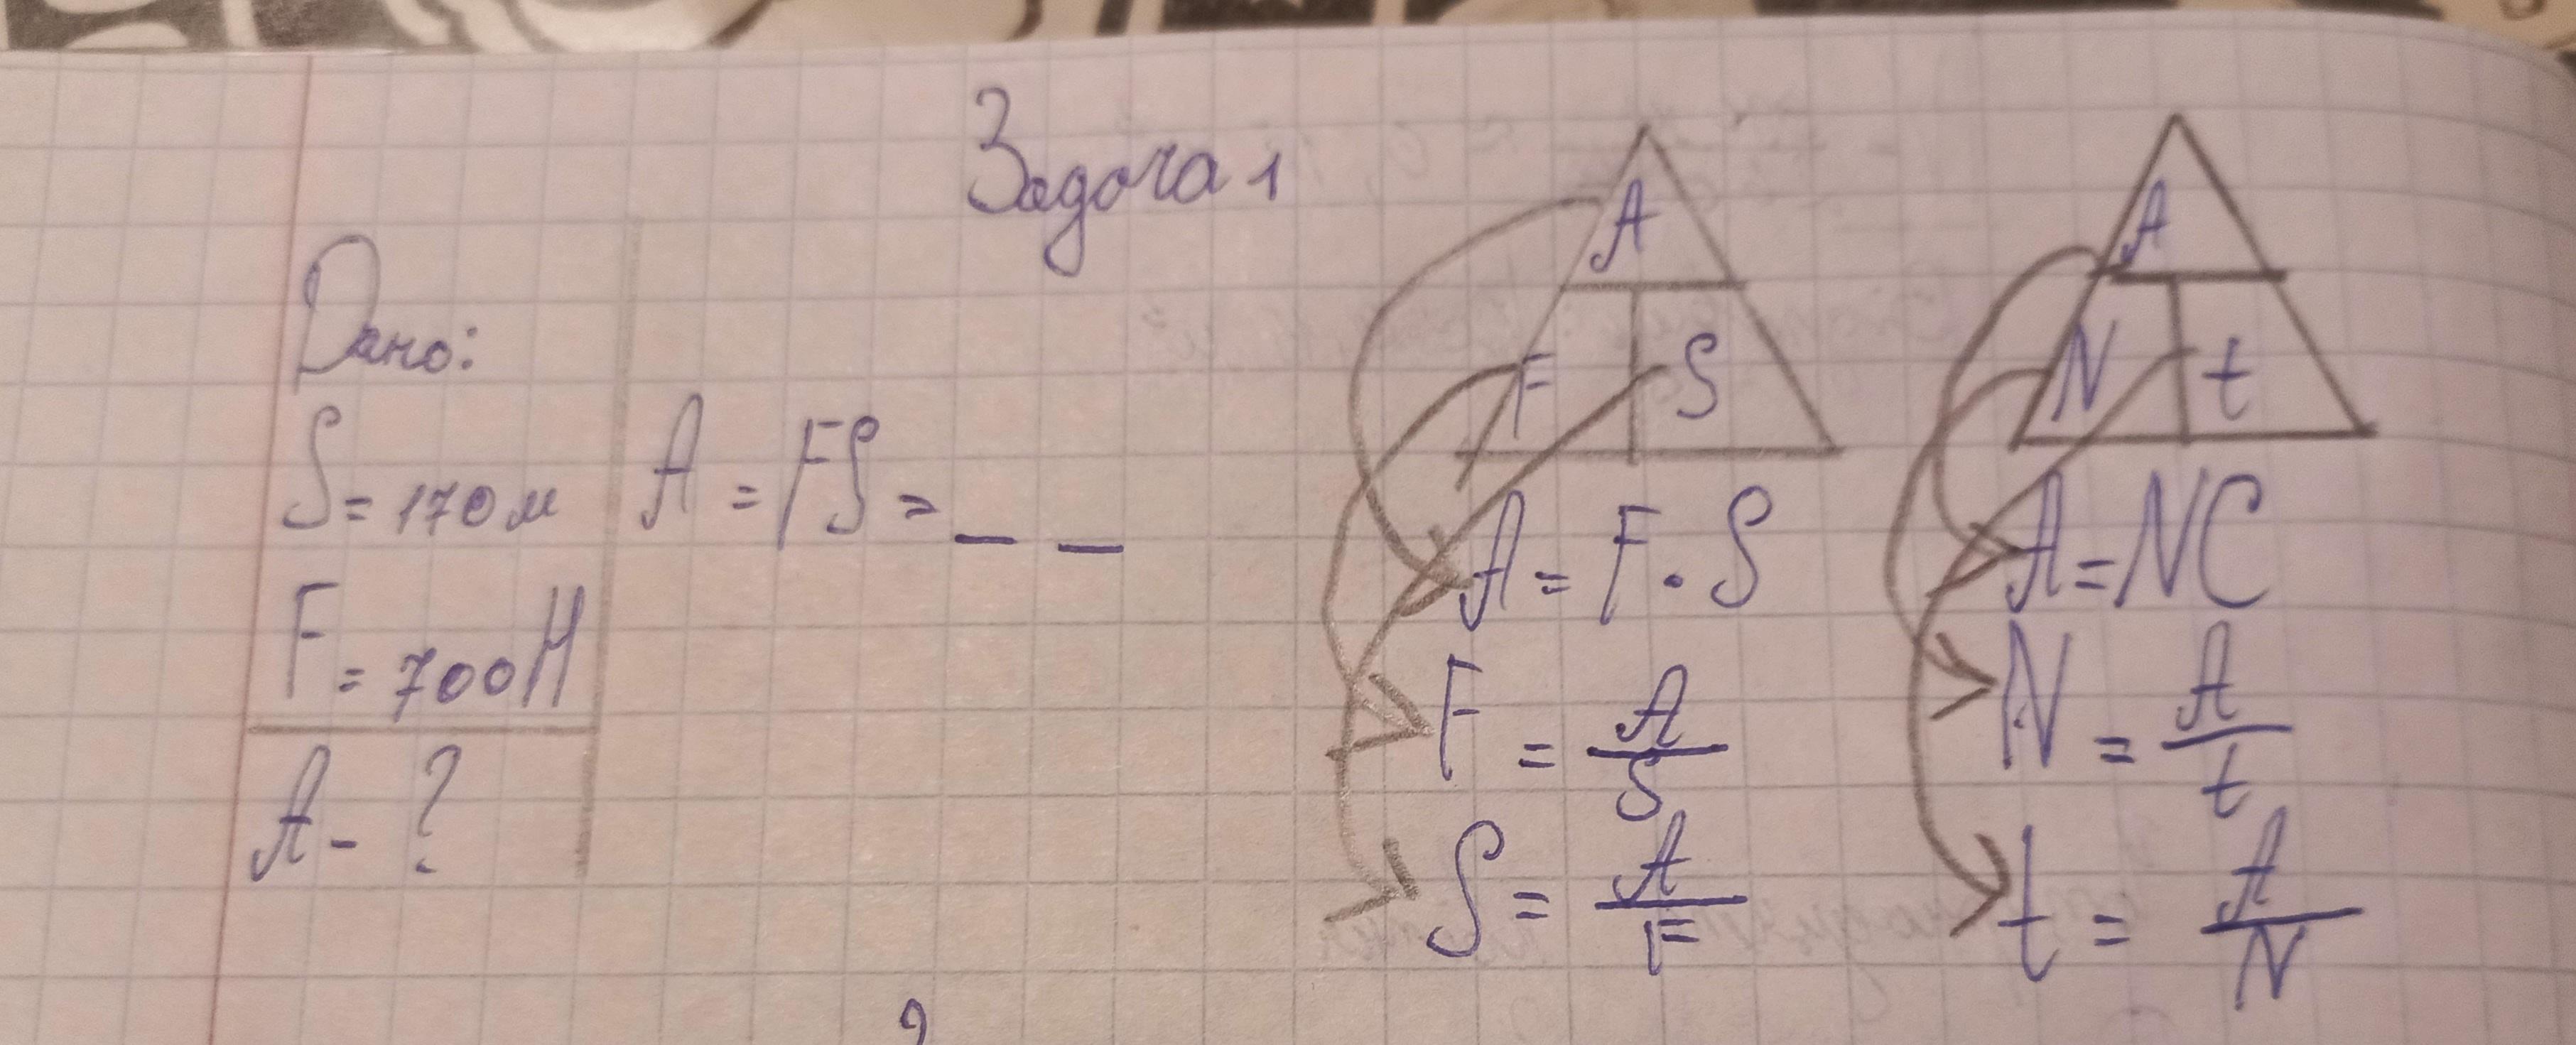 Задача 1
Дано:
S = 170 м
F = 700 Н
A - ?
A = FS = _ _
A
F S
A = F · S
F = A / S
S = A / F
A
N t
A = NC
N = A / t
t = A / N